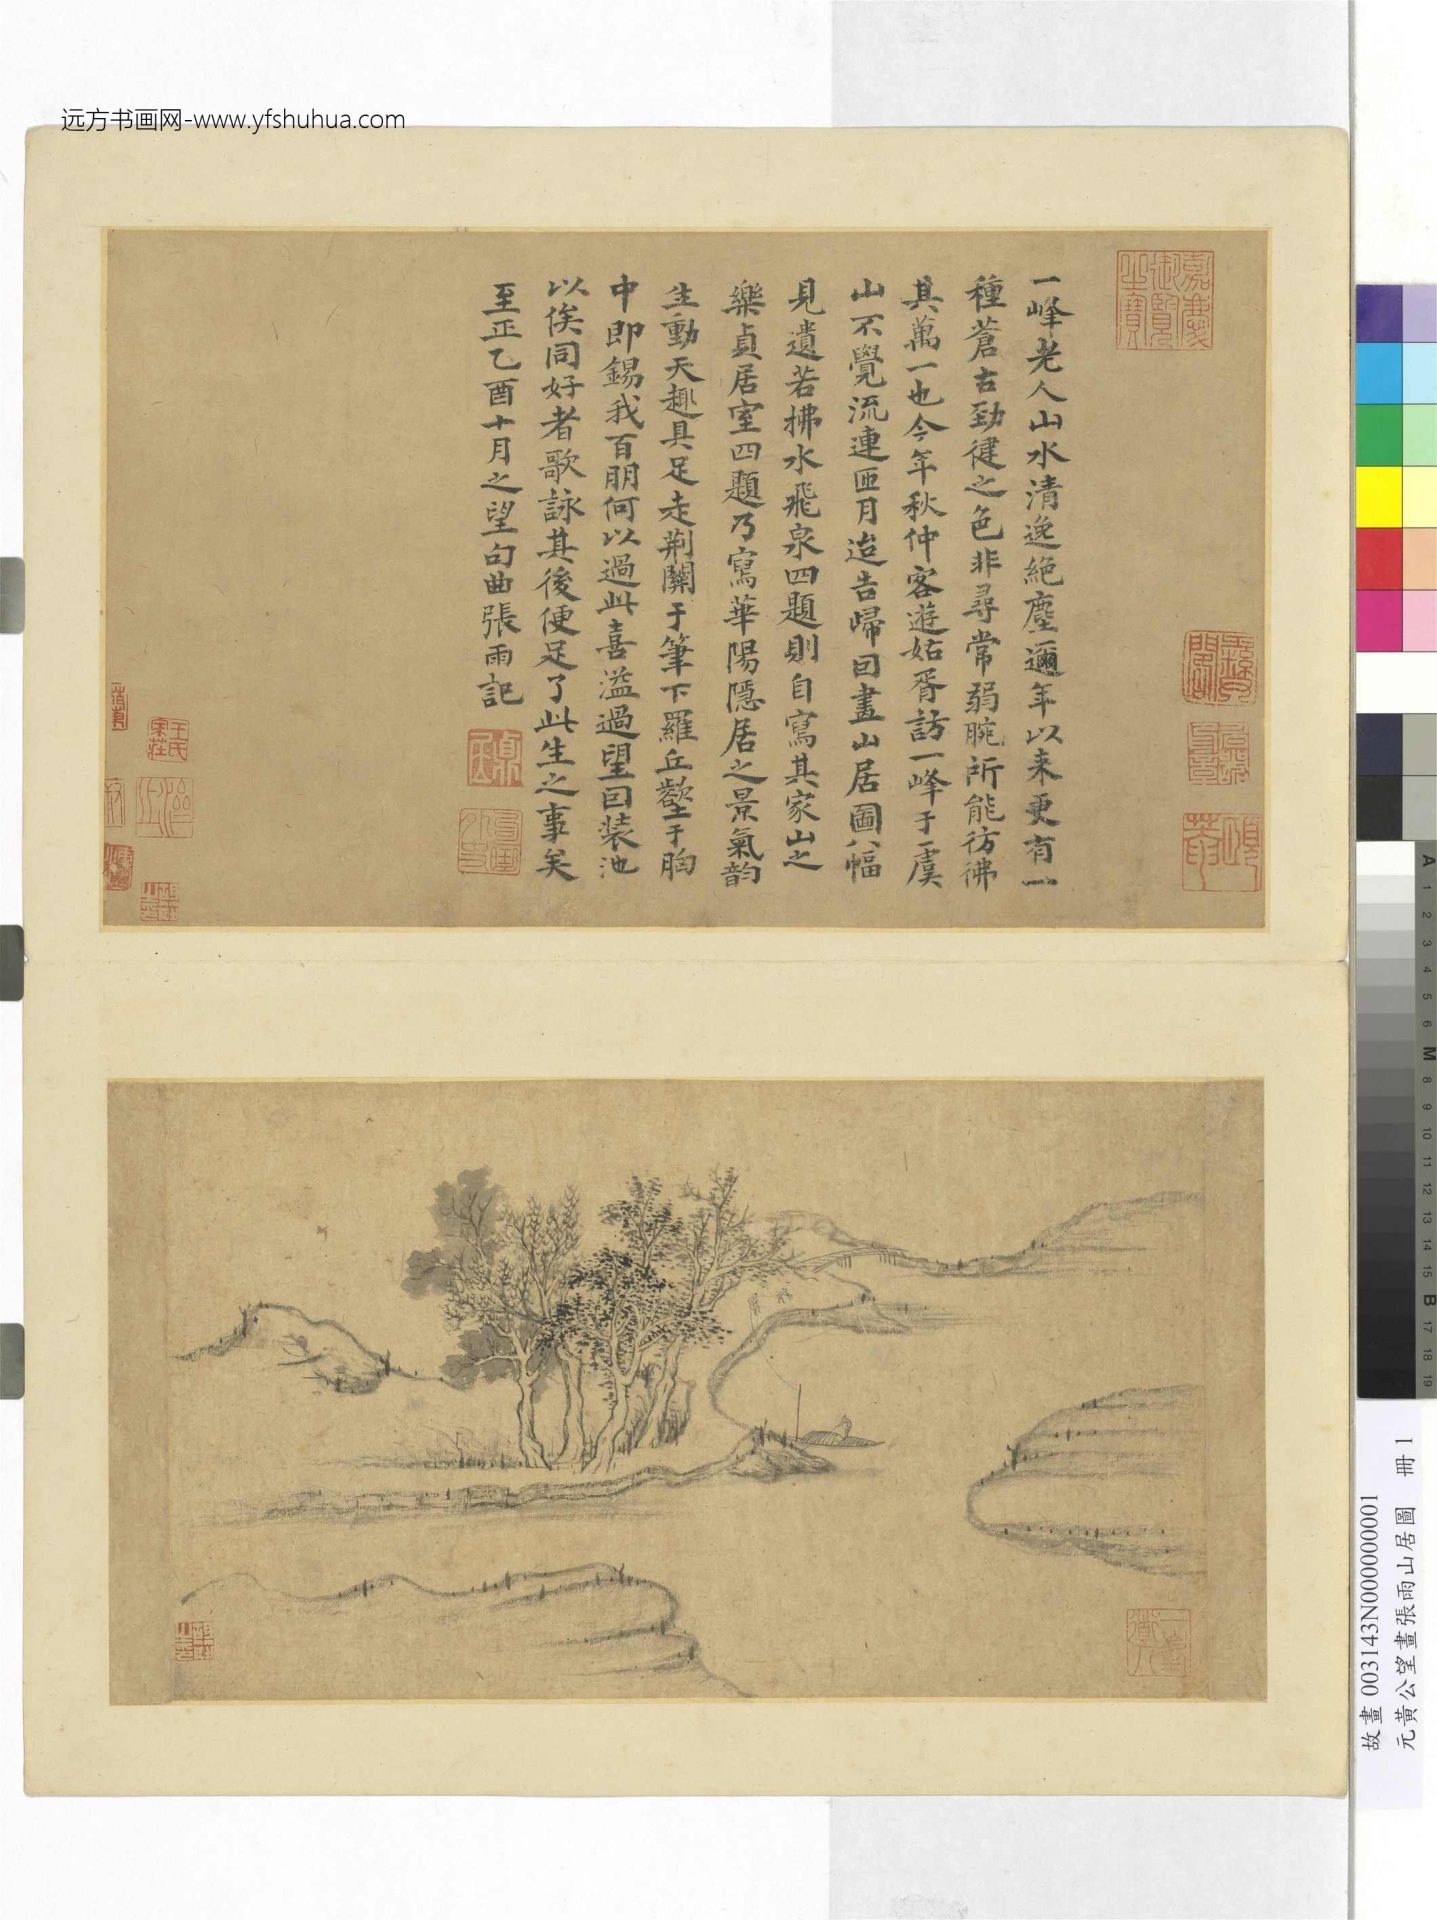 远方书画网-www.yfshuhua.com
嘉慶御覽之寶
一峰老人山水清逸絕塵邇年以来更有一
種蒼古勁健之色非尋常弱腕所能彷彿
其萬一也今年秋仲客遊姑胥訪一峰于虞
山不覺流連匝月迨告歸回畫山居圖八幅
見遺若拂水飛泉四題則自寫其家山之
樂貞居室四題乃寫華陽隱居之景氣韵
生動天趣具足走荆關于筆下羅丘壑于胸
中即錫我百朋何以過此喜溢過望回装池
以俟同好者歌詠其後便足了此生之事矣
至正乙酉十月之望句曲張雨記
故畫 003143N000000001
元黃公望畫張雨山居圖 冊 1
A 1 2 3 4 5 6 M 8 9 10 11 12 13 14 15 B 17 18 19